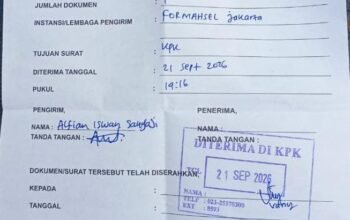 JUMLAH DOKUMEN : 1
INSTANSI/LEMBAGA PENGIRIM : FORMAHSEL Jakarta
TUJUAN SURAT : KPK
DITERIMA TANGGAL : 21 Sept 2026
PUKUL : 19:16
PENGIRIM, PENERIMA,
NAMA : Alfian Iswan NAMA :
TANDA TANGAN : TANDA TANGAN :
DITERIMA DI KPK
TGL : 21 SEP 2026
NAMA :
TELP : 021-25578300
EXT : 8993
DOKUMEN/SURAT TERSEBUT TELAH DISERAHKAN
KEPADA :
TANGGAL :